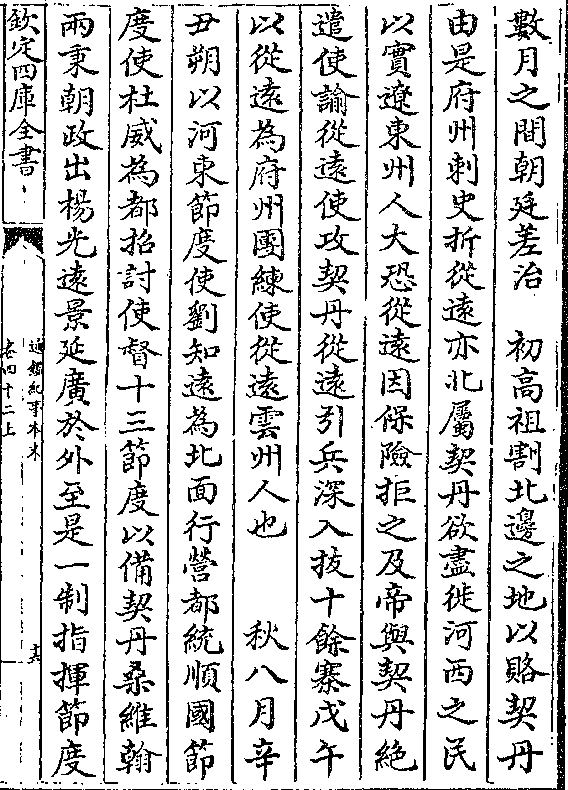 數月之間朝廷差治　初高祖割北邊之地以賂契丹
由是府州刺史折從遠亦北屬契丹欲盡徙河西之民
以實遼東州人大恐從遠因保險拒之及帝與契丹絶
遣使諭從遠使攻契丹從遠引兵深入拔十餘寨戊午
以從遠為府州團練使從遠雲州人也　　秋八月辛
丑朔以河東節度使劉知遠為北面行營都統順國節
度使杜威為都招討使督十三節度以備契丹桑維翰
兩秉朝政出楊光遠景延廣於外至是一制指揮節度
欽定四庫全書
通鑑紀事本末
卷四十二上
十六